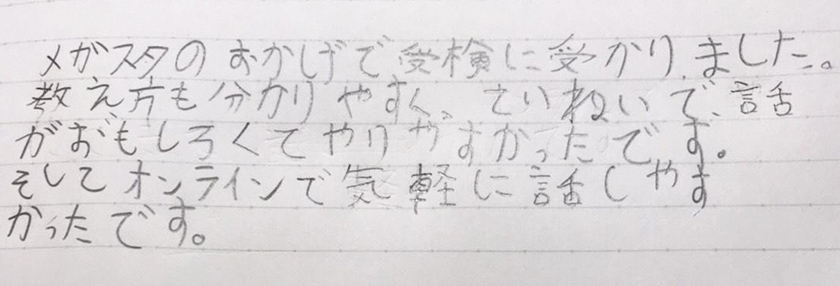 メガスタのおかげで受検に受かりました。
教え方も分かりやすく、ていねいで、話
がおもしろくてやりやすかったです。
そしてオンラインで気軽に話しやす
かったです。